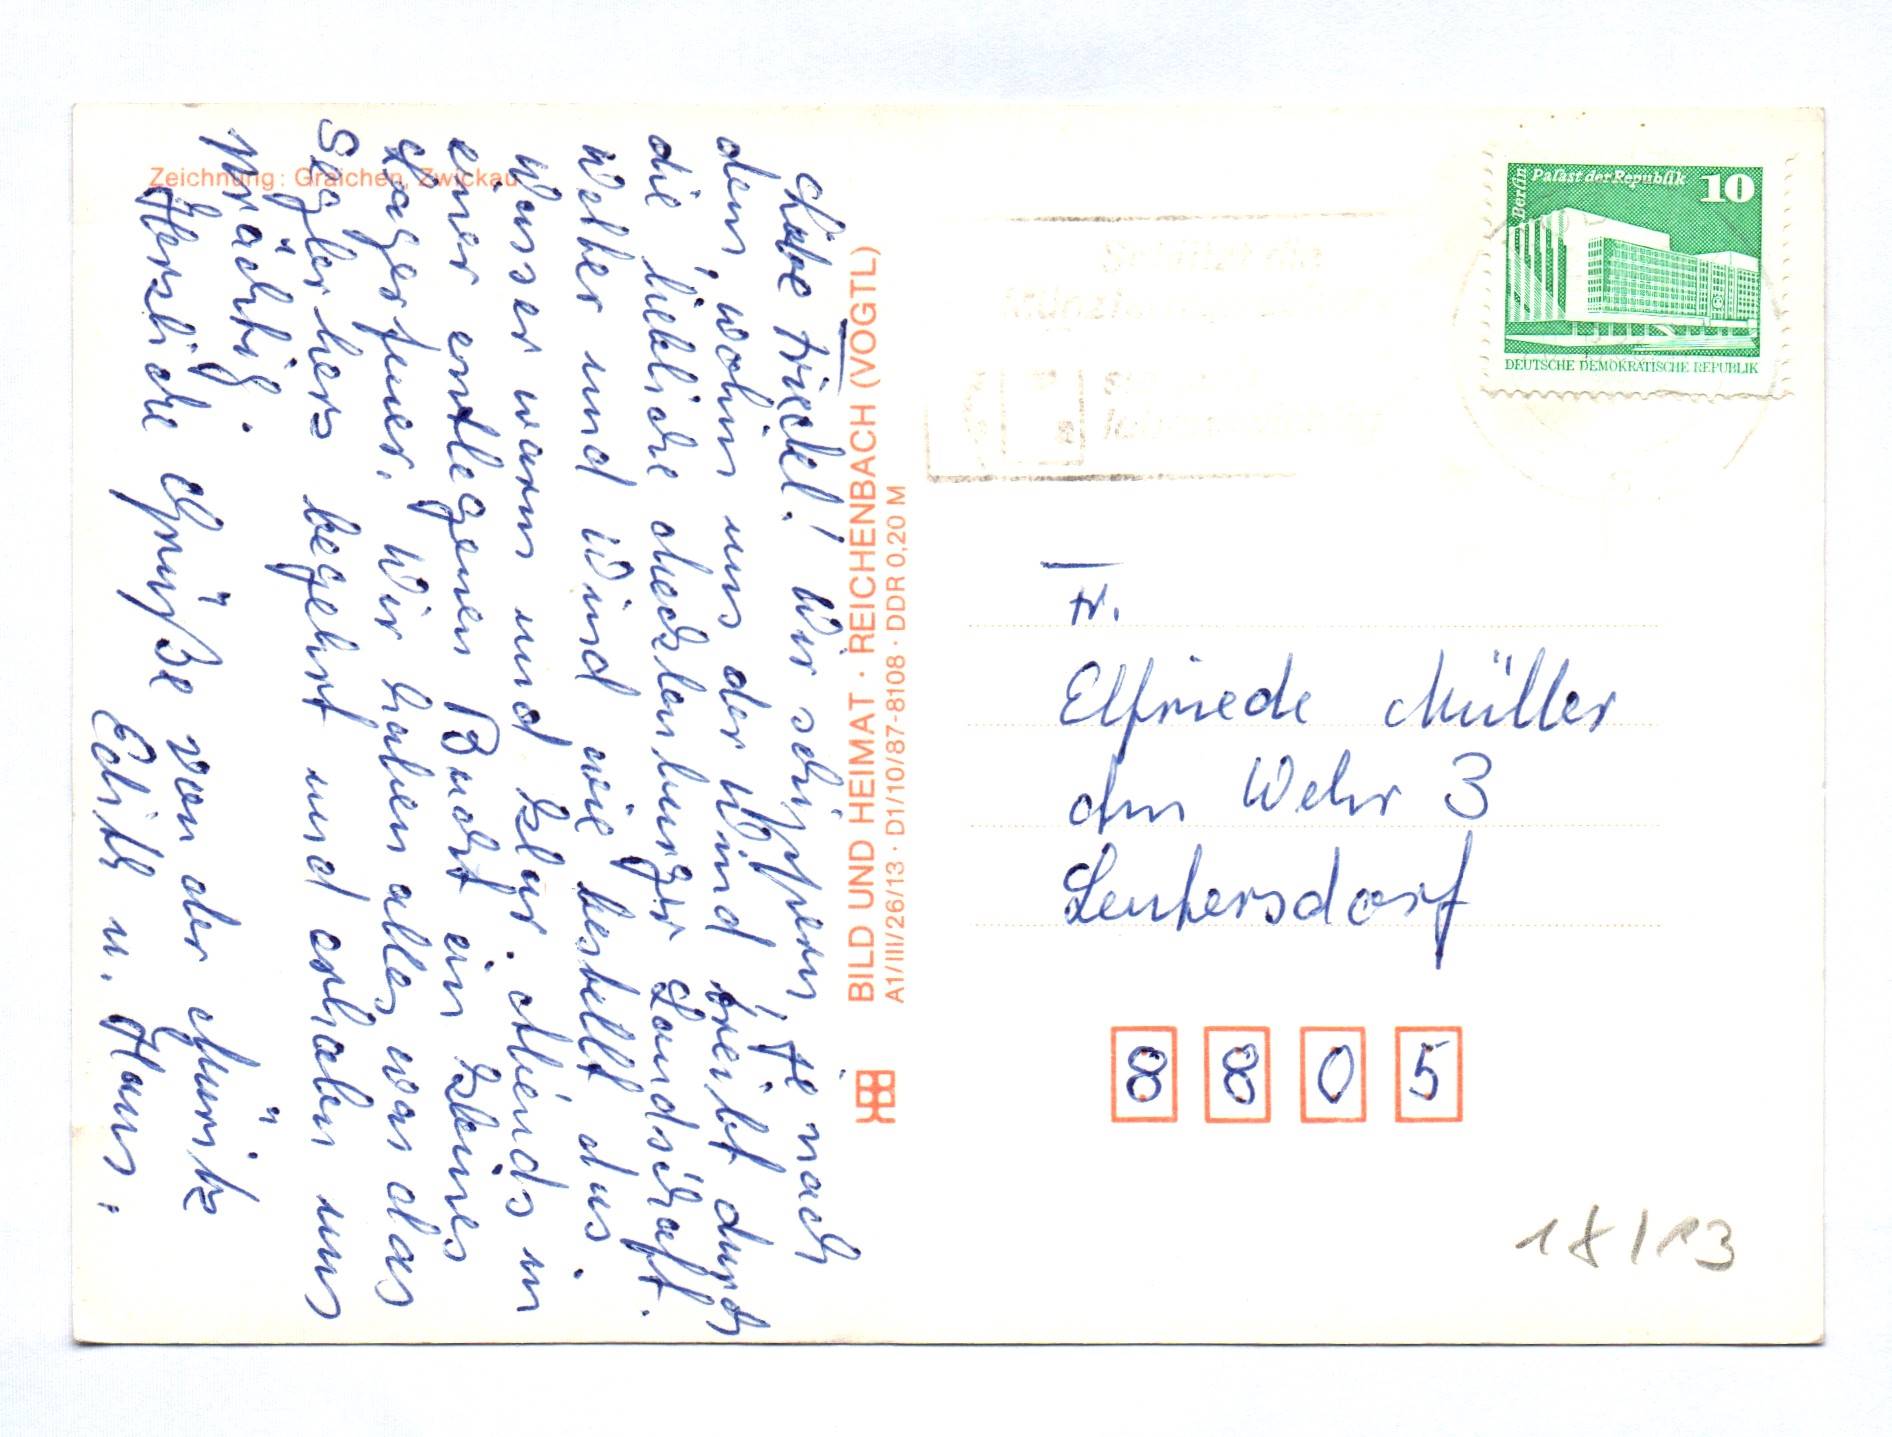 Zeichnung: Graichen, Zwickau
Liebe Friedel! Wir schippern, je nach
dem, wohin uns der Wind treibt durch
die liebliche Mecklenburger Landschaft.
Wetter und Wind wie bestellt aus.
Wasser warm und klar. Abends in
einer entlegenen Bucht ein kleines
Lagerfeuer. Wir haben alles was das
Seglerherz begehrt und erholen uns
prächtig.
Herzliche Grüße von der Müritz
Edith u. Hans.
BILD UND HEIMAT · REICHENBACH (VOGTL)
A1/III/26/13 · D1/10/87-8108 · DDR 0,20 M
Berlin
Palast der Republik 10
DEUTSCHE DEMOKRATISCHE REPUBLIK
Fr.
Elfriede Müller
Am Wehr 3
Leutersdorf
8805
18/13